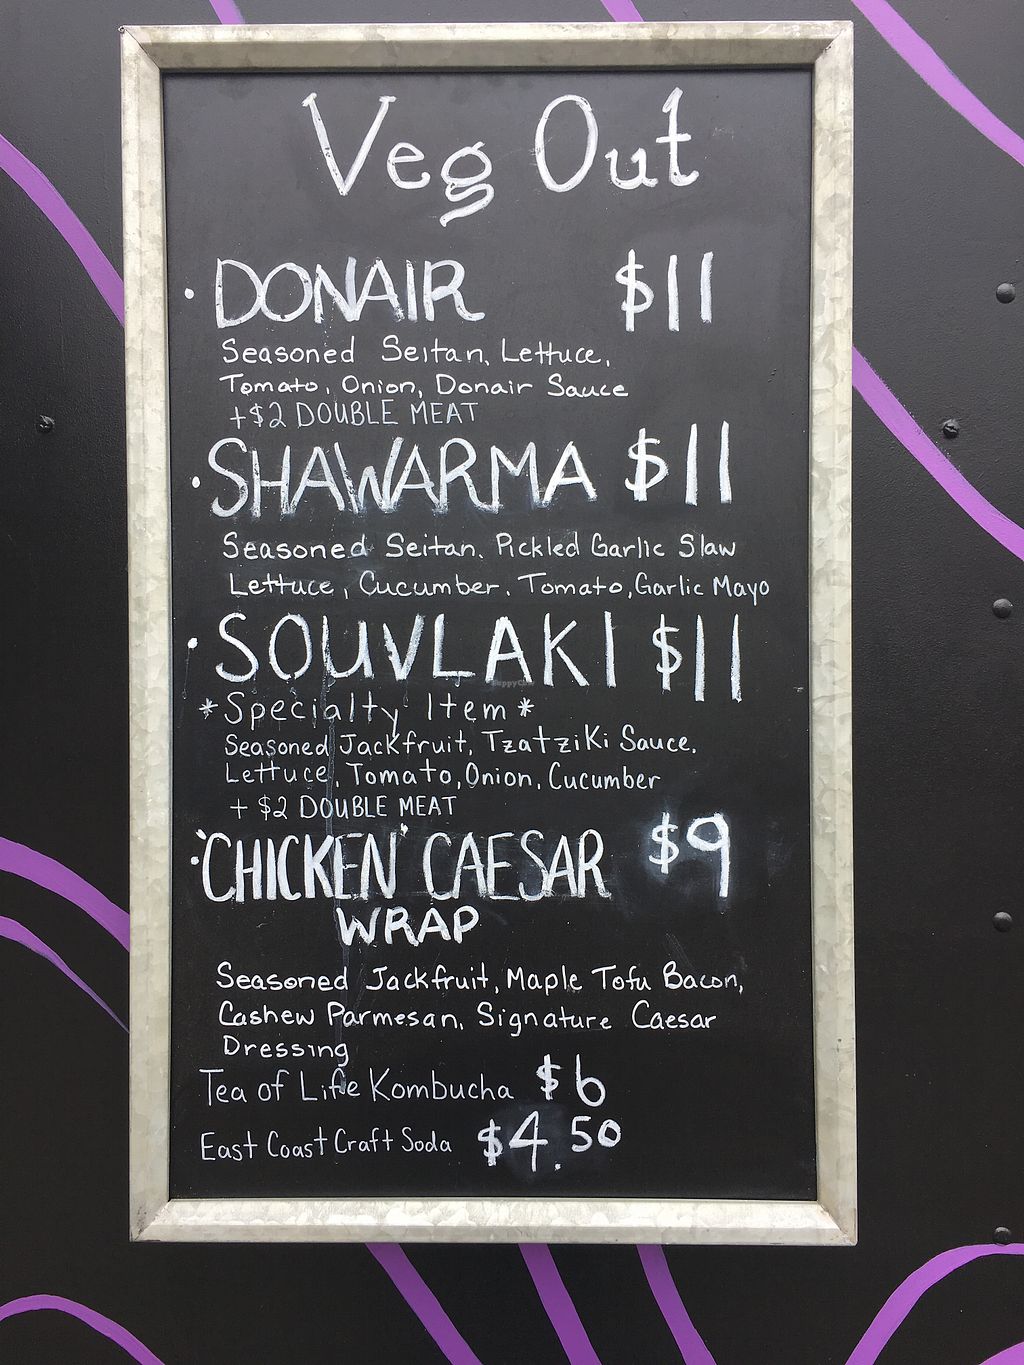 Veg Out
• DONAIR $11
Seasoned Seitan, Lettuce,
Tomato, Onion, Donair Sauce
+$2 DOUBLE MEAT
• SHAWARMA $11
Seasoned Seitan, Pickled Garlic Slaw
Lettuce, Cucumber, Tomato, Garlic Mayo
• SOUVLAKI $11
*Specialty Item*
Seasoned Jackfruit, Tzatziki Sauce,
Lettuce, Tomato, Onion, Cucumber
+ $2 DOUBLE MEAT
• "CHICKEN" CAESAR $9
WRAP
Seasoned Jackfruit, Maple Tofu Bacon,
Cashew Parmesan, Signature Caesar
Dressing
Tea of Life Kombucha $6
East Coast Craft Soda $4.50